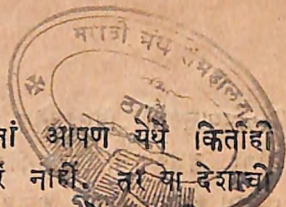 मराठी ग्रंथ संग्रहालय
ठाणें
तां आपण येथें कितीही
नाहीं. तर या देशाची